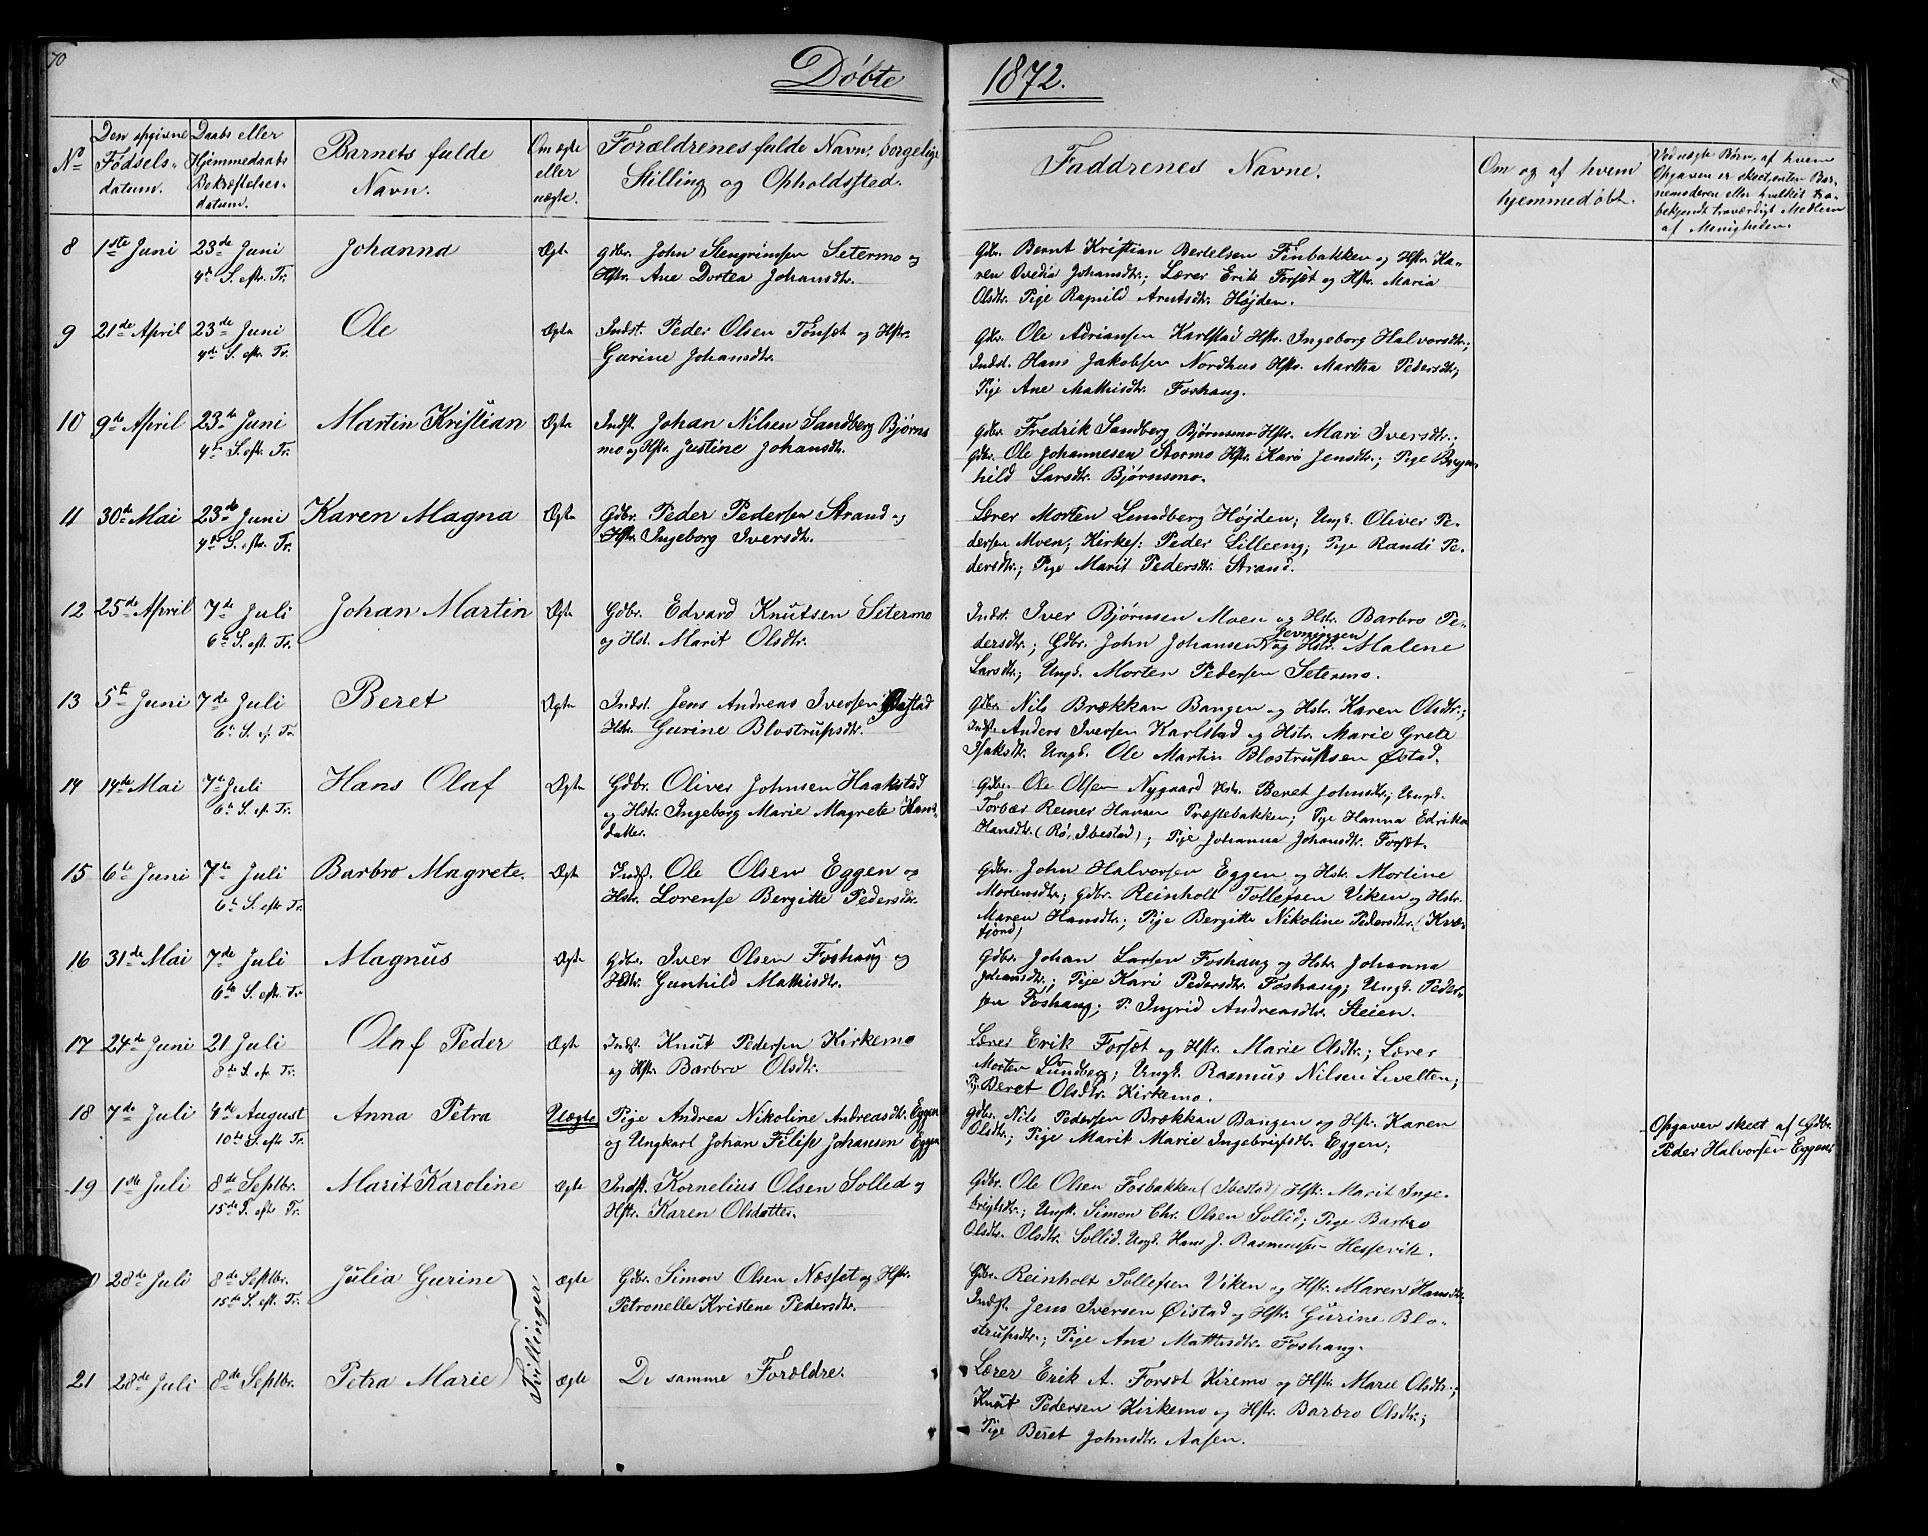 70
Døbte 1872.
No
Den opgivne Fødsels-datum.
Daabs eller Hjemmedaabs Bekræftelses-datum.
Barnets fulde Navn.
Om ægte eller uægte.
Forældrenes fulde Navn, borgelige Stilling og Opholdssted.
Faddrenes Navne.
Om og af hvem hjemmedøbt.
Ved uægte Børn, af hvem Opgaven er skeet, enten Barnemoderen eller hvilket bekjendt troværdigt Medlem af Menigheden.
8 1ste Juni 23de Juni Johanna Ægte Gdbr. John Stengrimsen Setermo og
4de S. eft. Tr. Hstr. Ane Dortea Johansdtr.
Gdbr. Bernt Kristian Bertelsen Finbakken og Hstr. Ka-
ren Ovedia Johansdtr.; Lærer Erik Forsæt og Hstr. Maria
Olsdtr. Pige Ragnild Arntsdtr. Højden.
9 21de April 23de Juni Ole Ægte Indst. Peder Olsen Tønsæt og Hstr.
4de S. eft. Tr. Gurine Johansdtr.
Gdbr. Ole Adriansen Karlstad Hstr. Ingeborg Halvorsdtr.;
Indst. Hans Jakobsen Nordhus Hstr. Martha Pedersdtr;
Pige Ane Mathisdtr. Foshaug.
10 9de April 23de Juni Martin Kristian Ægte Indst. Johan Nilsen Sandberg Bjørns
4de S. eft. Tr. mo og Hstr. Justine Johansdtr.
Gdbr. Fredrik Sandberg Bjørnsmo Hstr. Mari Iversdtr.;
Gdbr. Ole Johannesen Stormo Hstr. Kari Jensdtr.; Pige Bryn
hild Larsdtr. Bjørnsmo.
11 30te Mai 23de Juni Karen Magna Ægte Gdbr. Peder Pedersen Strand og
4de S. eft. Tr. Hstr. Ingeborg Iversdtr.
Lærer Morten Lundberg Højden; Ungk. Oliver Pe-
dersen Moen; Kirkes: Peder Lilleeng; Pige Randi Pe-
dersdtr.; Pige Marit Pedersdtr. Strand.
12 25de April 7de Juli Johan Martin Ægte Gdbr. Edvard Knutsen Setermo
6te S. eft. Tr. og Hst. Marit Olsdtr.
Indst. Iver Bjørnsen Moen og Hstr. Barbro Pe-
dersdtr.; Gdbr. John Johansen Jevningen og Hstr. Malene
Larsdtr; Ungk. Morten Pedersen Setermo.
13 5te Juni 7de Juli Beret Ægte Indst. Jens Andreas Iversen Øistad
6te S. ef. Tr. Hstr. Gurine Blostrupsdtr.
Gdbr. Nils Brækkan Bangen og Hstr. Karen Olsdtr.;
Indst. Anders Iversen Karlstad og Hstr. Marie Grete
Isaksdtr. Ungk. Ole Martin Blostrupsen Øistad.
14 14de Mai 7de Juli Hans Olaf Ægte Gdbr. Oliver Johnsen Haakstad
6te S. ef. Tr. og Hstr. Ingeborg Marie Magrete Hans
datter.
Gdbr. Ole Olsen Nygaard Hstr. Beret Johnsdtr; Ungk.
Torbær Reiner Hansen Præstebakken; Pige Hanna Edrika
Hansdtr. (Rø, Ibestad); Pige Johanna Johansdtr. Forsæt.
15 6te Juni 7de Juli Barbro Magrete. Ægte Indst. Ole Olsen Eggen og
6te S. eft. Tr. Hstr. Lorense Bergitte Pedersdtr.
Gdbr. John Halvorsen Eggen og Hstr. Mortine
Mortensdtr; Gdbr. Reinholt Tollefsen Viken og Hstr.
Maren Hansdtr.; Pige Bergitte Nikoline Pedersdtr. (Kvæ-
fjord)
16 31de Mai 7de Juli Magnus Ægte Gdbr. Iver Olsen Foshaug og
6te S. eft. Tr. Hstr. Gunhild Mathisdtr.
Gdbr. Johan Larsen Foshaug og Hstr. Johanna
Johansdtr.; Pige Kari Pedersdtr. Foshaug; Ungk. Peder-
sen Foshaug; P. Ingrid Andreasdtr. Steien.
17 24de Juni 21 Juli Olaf Peder Ægte Indst. Knut Pedersen Kirkemo
8de S. ef. Tr. og Hstr. Barbro Olsdtr.
Lærer Erik Forsæt og Hstr. Marie Olsdtr.; Lærer
Morten Lundberg; Ungk. Rasmus Nilsen Livelten;
Pig. Beret Olsdtr. Kirkemo.
18 7de Juli 4de August Anna Petra Uægte Pige Andrea Nikoline Andreasdtr. Eggen
10de S. eft. Tr. og Ungkarl Johan Filip Johansen Eggen
Gdbr. Nils Pedersen Brækkan Bangen og Hstr. Karen
Olsdtr.; Pige Marit Marie Ingebrigtsdtr. Eggen;
Opgaven skeet af Gdbr.
Peder Halvorsen Eggen.
19 1ste Juli 8de Septbr. Marit Karoline Ægte Indst. Kornelius Olsen Sollid og
15de S. eft. Tr. Hstr. Karen Olsdatter.
Gdbr. Ole Olsen Fosbakken (Ibestad) Hstr. Marit Inge-
brigtsdtr.; Ungk. Simon Chr. Olsen Sollid; Pige Barbro
Olsdtr. Olsdtr. Sollid. Ungk. Hans J. Rasmussen Hessevik.
28de Juli 8de Septbr. Julia Gurine ægte Gdbr. Simon Olsen Næsset og Hstr.
15de S. eft. Tr. Petronelle Kristene Pedersdtr.
Tvillinger
Gdbr. Reinholt Tollefsen Viken og Hstr. Maren Hansdtr.
Indst. Jens Iversen Øistad og Hstr. Gurine Blo-
strupsdtr.; Pige Ane Mathisdtr. Foshaug.
21 28de Juli 8de Septbr. Petra Marie ægte De samme Forældre.
Lærer Erik A. Forsæt Kiremo og Hstr. Marie Olsdtr.;
Knut Pedersen Kirkemo og Hstr. Barbro Olsdtr.;
Pige Beret Johnsdtr. Aasen.